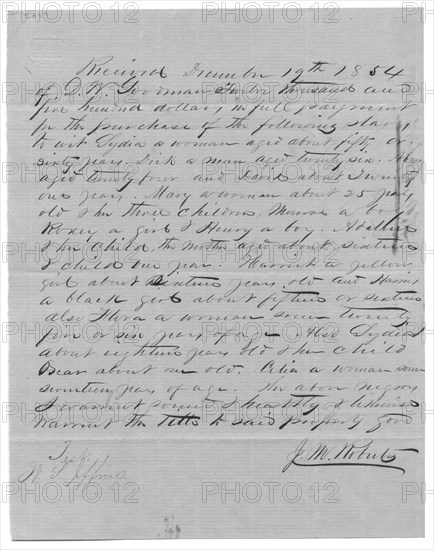 Received December 19th 1854
of D. W. Goorman Twelve thousand and
five hundred dollars in full payment
for the purchase of the following slaves
to wit Lydia a woman aged about fifty or
sixty years, Dick a man aged twenty six,
aged twenty four and about Twenty
one years. Mary a woman about 25 years
old & her three children, a boy
Roxey a girl & Henry a boy. Adaline
& her child, the mother aged about sixteen
& child one year. Harriet a yellow
girl about sixteen years old and Harriet
a black girl about fifteen or sixteen
also Flora a woman some twenty
five or six years of age. Also Lydia
about eighteen years old & her child
Oscar about one old. Celia a woman some
seventeen years of age. The above negroes
I warrant sound & healthy & likewise
warrant the title to said property good
J. M. Roberts
Test.
W.
PHOTO12